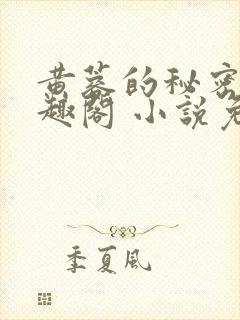 黄蓉的秘密
趣阁 小說免
季夏风